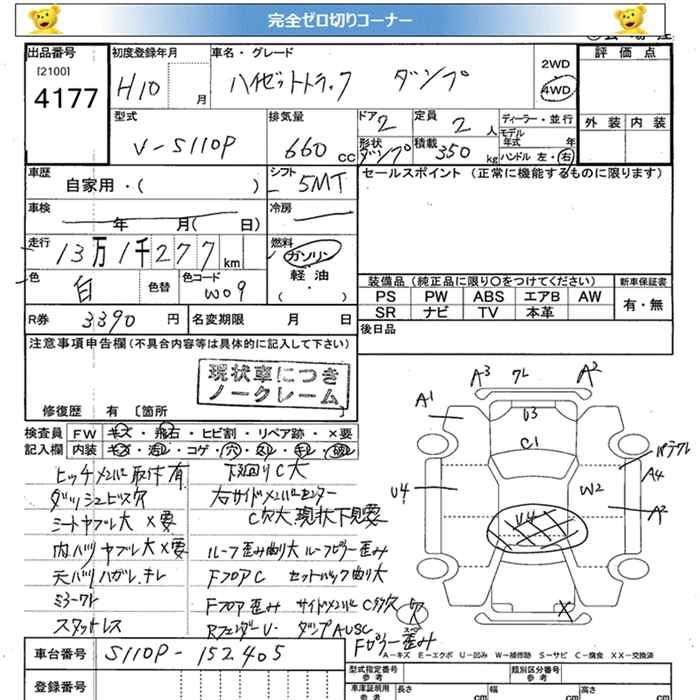 完全ゼロ切りコーナー
出品番号
[2100]
4177
初度登録年月
H10 月
車名・グレード
ハイゼットトラック ダンプ
2WD
4WD
評価点
外装 内装
型式
V-S110P
排気量
660 cc
ドア 2
形状 ダンプ
定員 2 人
積載 350 kg
ディーラー・並行
モデル年式 年
ハンドル 左・右
車歴
自家用・( )
シフト 5MT
セールスポイント (正常に機能するものに限ります)
車検
年 月( 日)
冷房
走行
13万1千277 km
燃料
ガソリン
軽油
( ・ )
色
白
色替
色コード
W09
装備品 (純正品に限り○をつけてください)
新車保証書
PS PW ABS エアB AW
SR ナビ TV 本革
有・無
R券 3390 円
名変期限 月 日
後日品
注意事項申告欄(不具合内容等は具体的に記入して下さい)
現状車につき
ノークレーム
修復歴 有 〔箇所 〕
検査員
記入欄
FW キズ・飛石・ヒビ割・リペア跡・×要
内装 キズ・汚レ・コゲ・穴・スレ・キレ・破レ
ヒッチメンバー取付有
ダッシュビス穴
シートヤブレ大 ×要
内バリヤブレ大×要
天バリハガレ、キレ
ミラーワレ
スタットレス
下回りC大
右サイドメンバーセンター
C穴大 現状下見要
ルーフ歪み曲り大 ルーフピラー歪み
FフロアC セットバック曲り大
Fフロア歪み サイドメンバーC多穴
RフェンダーU・ ダンプAUSC
Fピラー歪み
A3 ワレ A2
A1
U3
C1
U4
W2
U4
A4
A2
X
穴
スペア
A-キズ E-エクボ U-凹み W-補修跡 S-サビ C-腐食 XX-交換済
車台番号 S110P-152405
登録番号
型式指定番号
参考
類別区分番号
参考
車庫証明用
参考
長さ cm
幅 cm
高さ cm